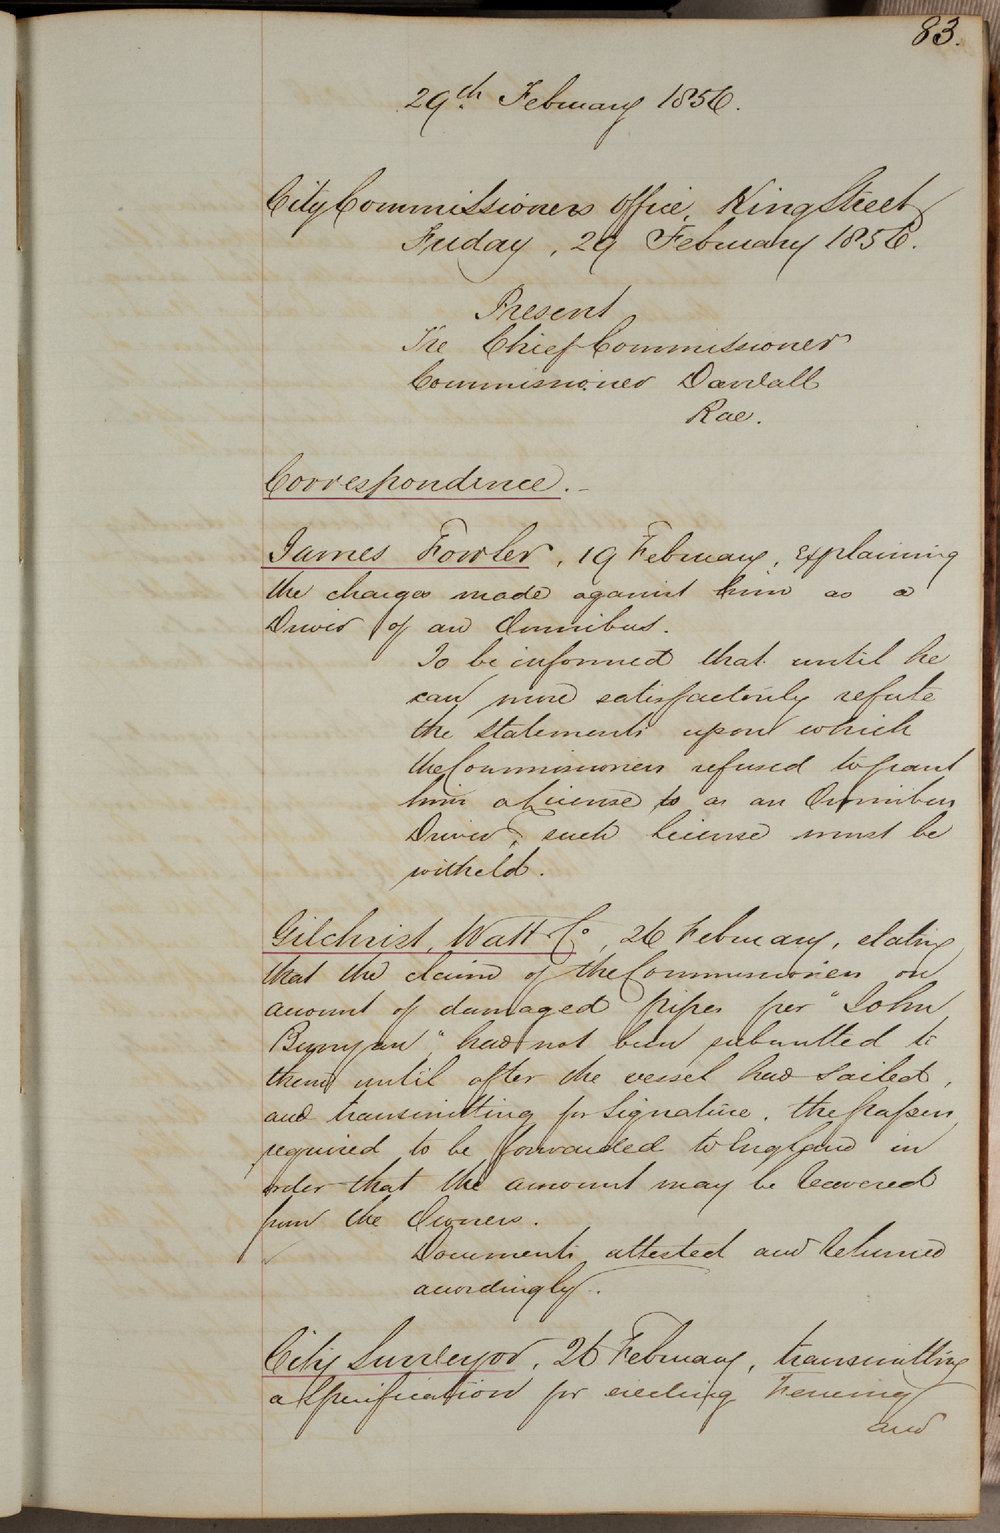 83.
29th February 1856.
City Commissioners Office, King Street
Friday, 29 February 1856.
Present
The Chief Commissioner
Commissioner Darvall
Rae.
Correspondence.-
James Fowler, 19 February, explaining
the charges made against him as a
Driver of an Omnibus.
To be informed that until he
can more satisfactorily refute
the statements upon which
the Commissioners refused to grant
him a License to as an Omnibus
Driver, such license must be
witheld.
Gilchrist, Watt & Co, 26 February, stating
that the claim of the Commissioners on
account of damaged pipes per "John
Bunyan" had not been submitted to
them until after the vessel had sailed,
and transmitting for Signature, the papers
required to be forwarded to England in
order that the amount may be recovered
from the Owners.
Documents attested and returned
accordingly.
City Surveyor, 26 February, transmitting
a Specification for erecting Fencing
and